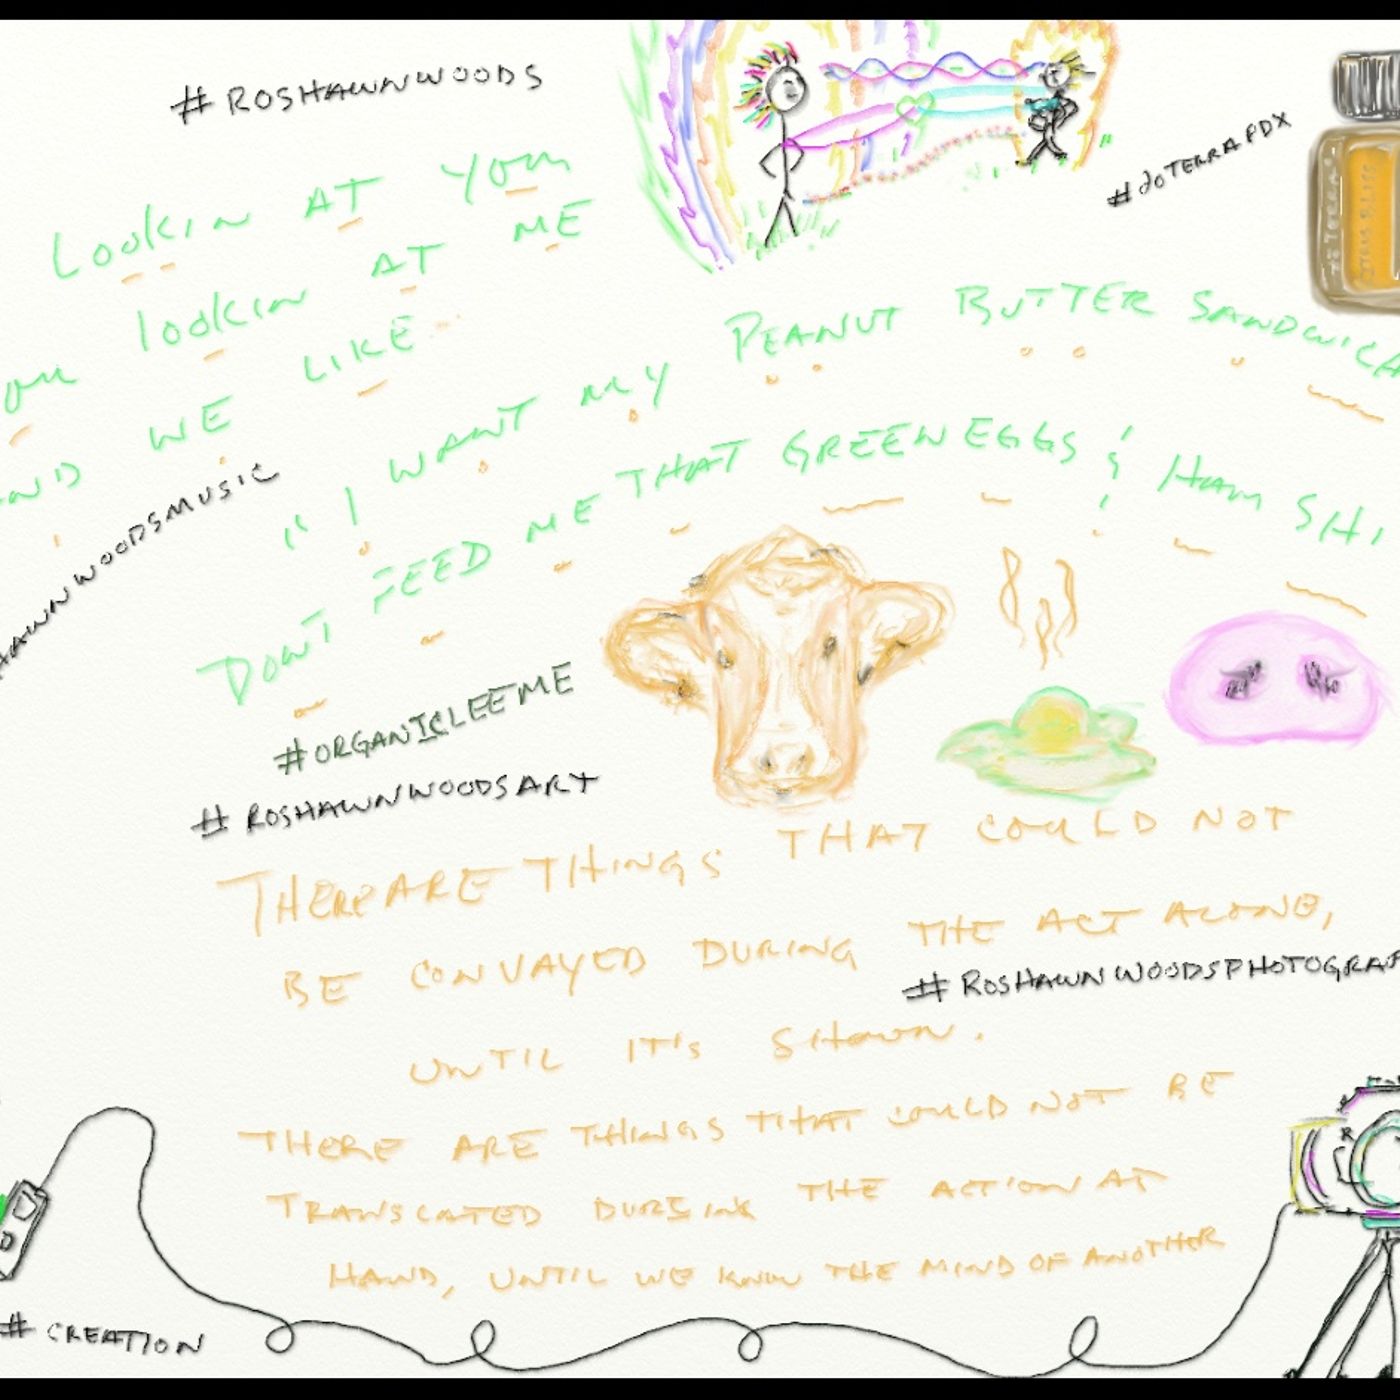 #ROSHAWNWOODS
LOOKIN AT YOU
LOOKIN AT ME
AND WE LIKE
#DOTERRAPDX
DOTERRA
CITRUS BLISS
"I WANT MY PEANUT BUTTER SANDWICH
DONT FEED ME THAT GREEN EGGS & HAM SHI
AWNWOODSMUSIC
#ORGANICLEEME
#ROSHAWNWOODSART
THERE ARE THINGS THAT COULD NOT
BE CONVAYED DURING THE ACT ALONE,
#ROSHAWNWOODSPHOTOGRAP
UNTIL IT'S SHOWN.
THERE ARE THINGS THAT COULD NOT BE
TRANSLATED DURING THE ACTION AT
HAND, UNTIL WE KNOW THE MIND OF ANOTHER
#CREATION